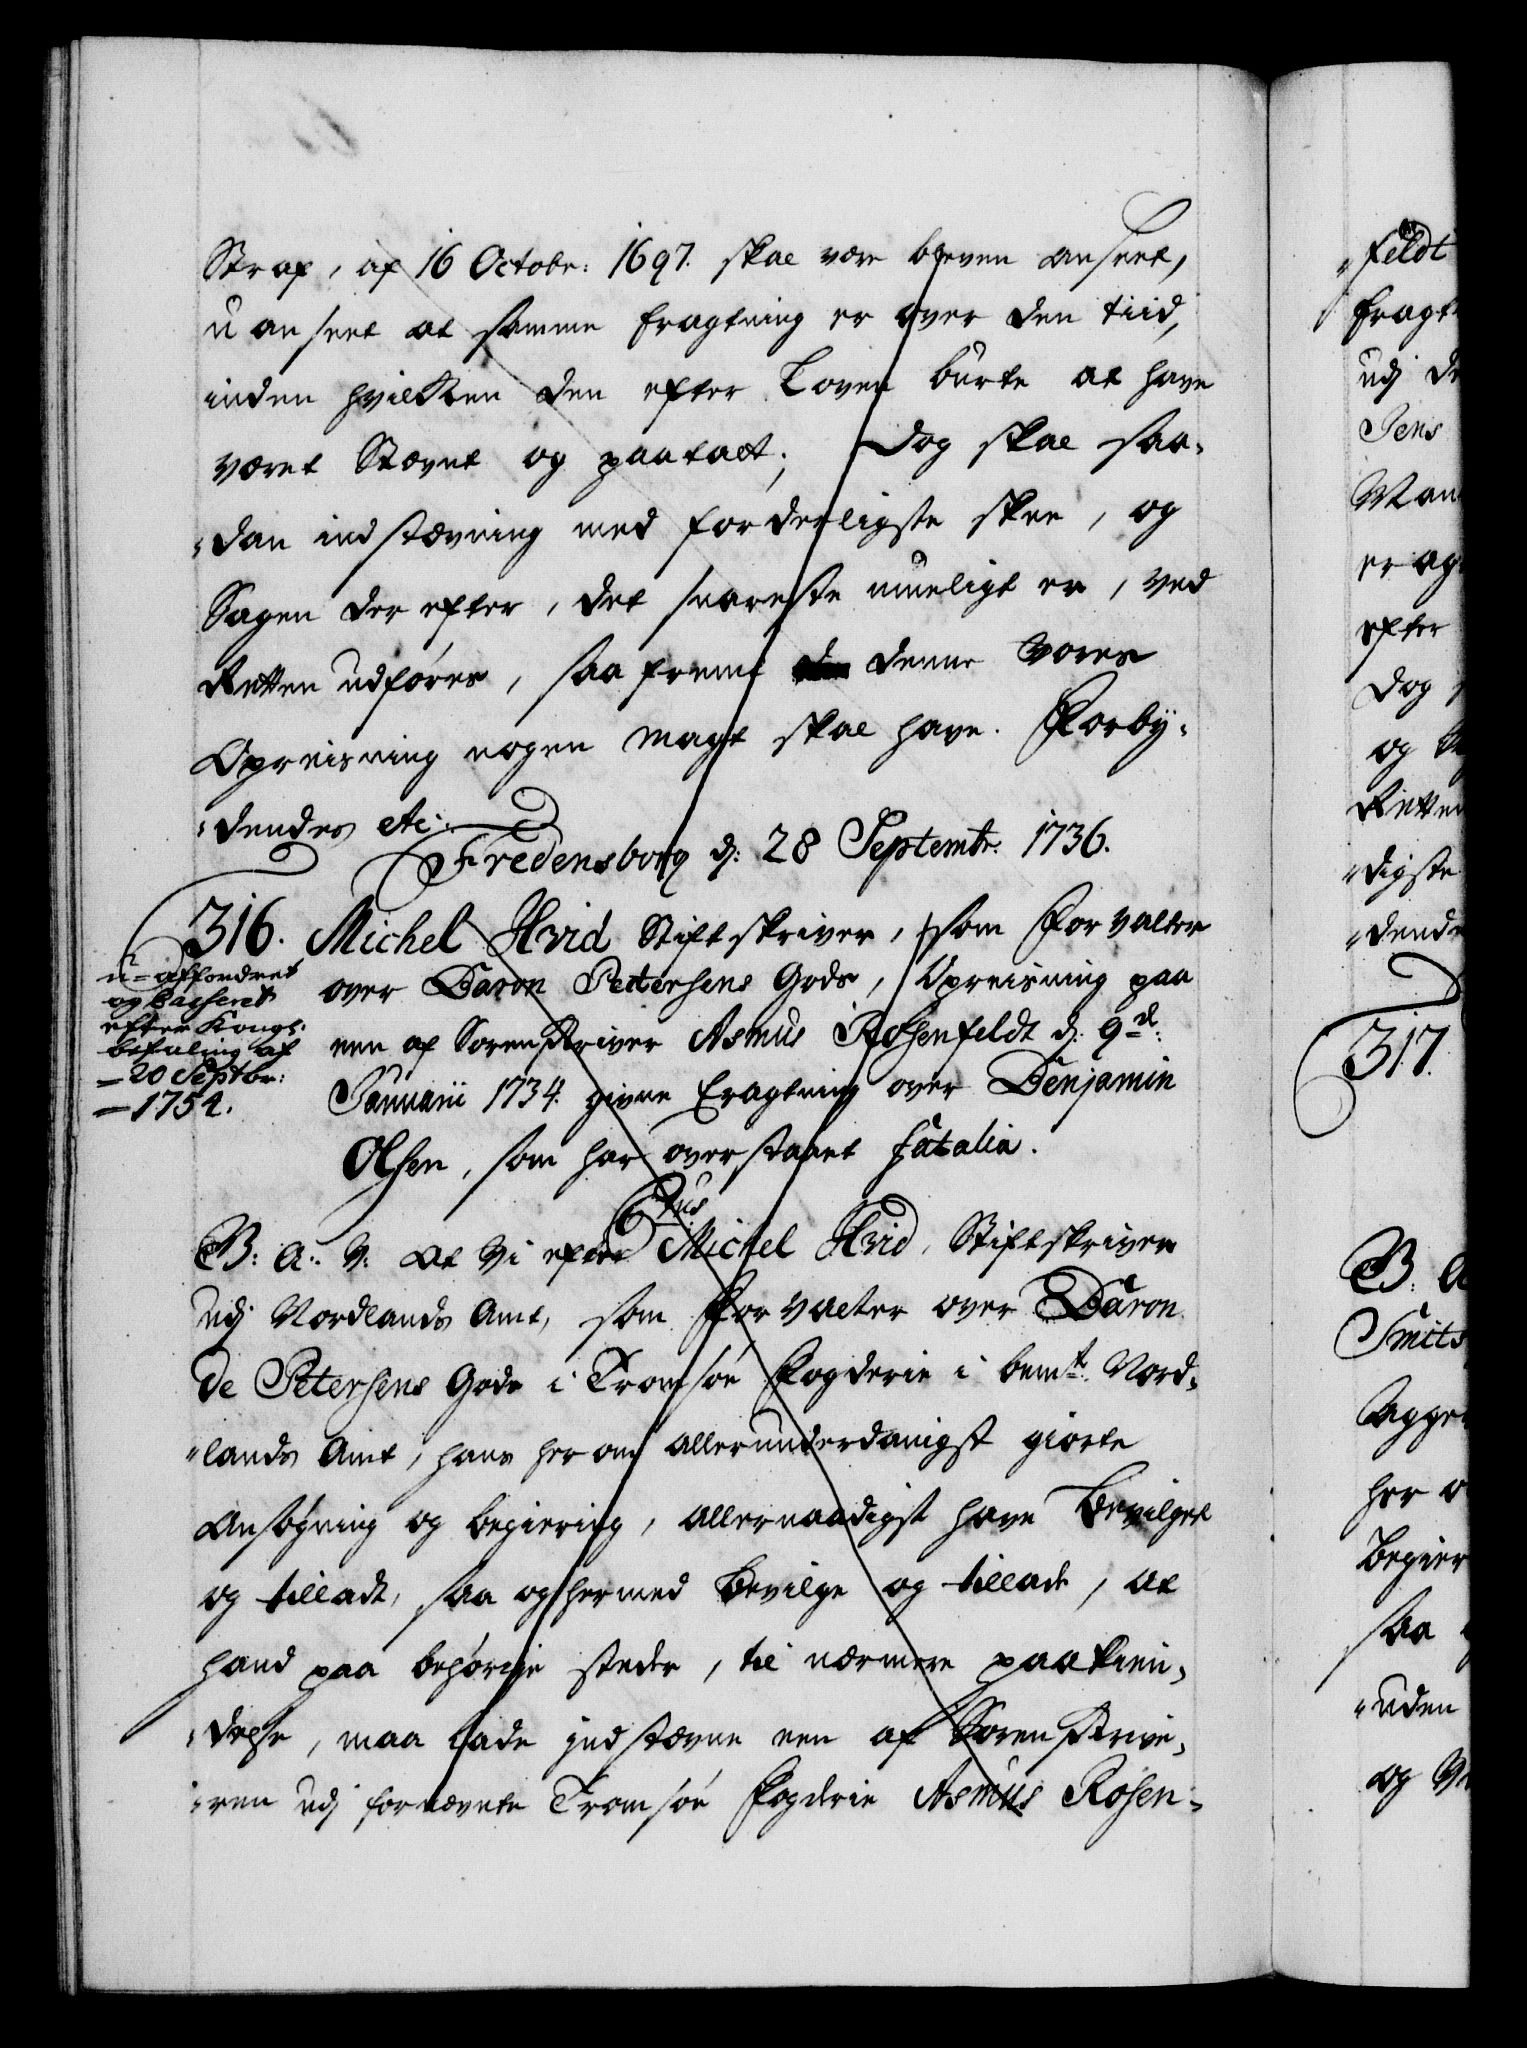 Straf, af 16 Octobr: 1697. skal være bleven anseet,
u anseet at samme Eragtning er over den tiid,
inden hvilken den efter Loven burte at have
været Stævnt og paatalt; Dog skal saa-
dan indstævning med forderligste skee, og
Sagen der efter, det snareste mueligt er, ved
Retten udføres, saafremt denne Vores
Opreisning nogen magt skal have. Forby-
dendes etc:
Fredensborg d: 28 Septembr: 1736.
316. Michel Hvid Stiftskriver, som Forvalter
over Baron Petersens Gods, Opreisning paa
een af Sorenskriver Asmus Rosenfeldt d: 9de:
Januarii 1734. givne Eragtning over Benjamin
Olsen, som har overstaaet fatalia.
u-affordret
og Casseret
efter Kongl:
befaling af
20 Septbr:
1754.
C6tus
G: A: V: At Vi efter Michel Hvid, Stiftskriver
udj Nordlands Amt, som Forvalter over Baron
de Petersens Gods i Tromsøe Fogderie i bemte: Nord-
lands Amt, hans herom allerunderdanigst giorte
Ansøgning og begiering, allernaadigst have bevilget
og tilladt, saa og hermed bevilge og tillade, at
hand paa behørige steder, til nærmere paakien-
delse, maa lade indstævne een af Sorenskrive-
ren udj fornævnte Tromsøe Fogderie Asmus Rosen-
feldt
udj
Jens
efter
Dog
og
Retten
digste
317.
Smits
her
saa
uden
og